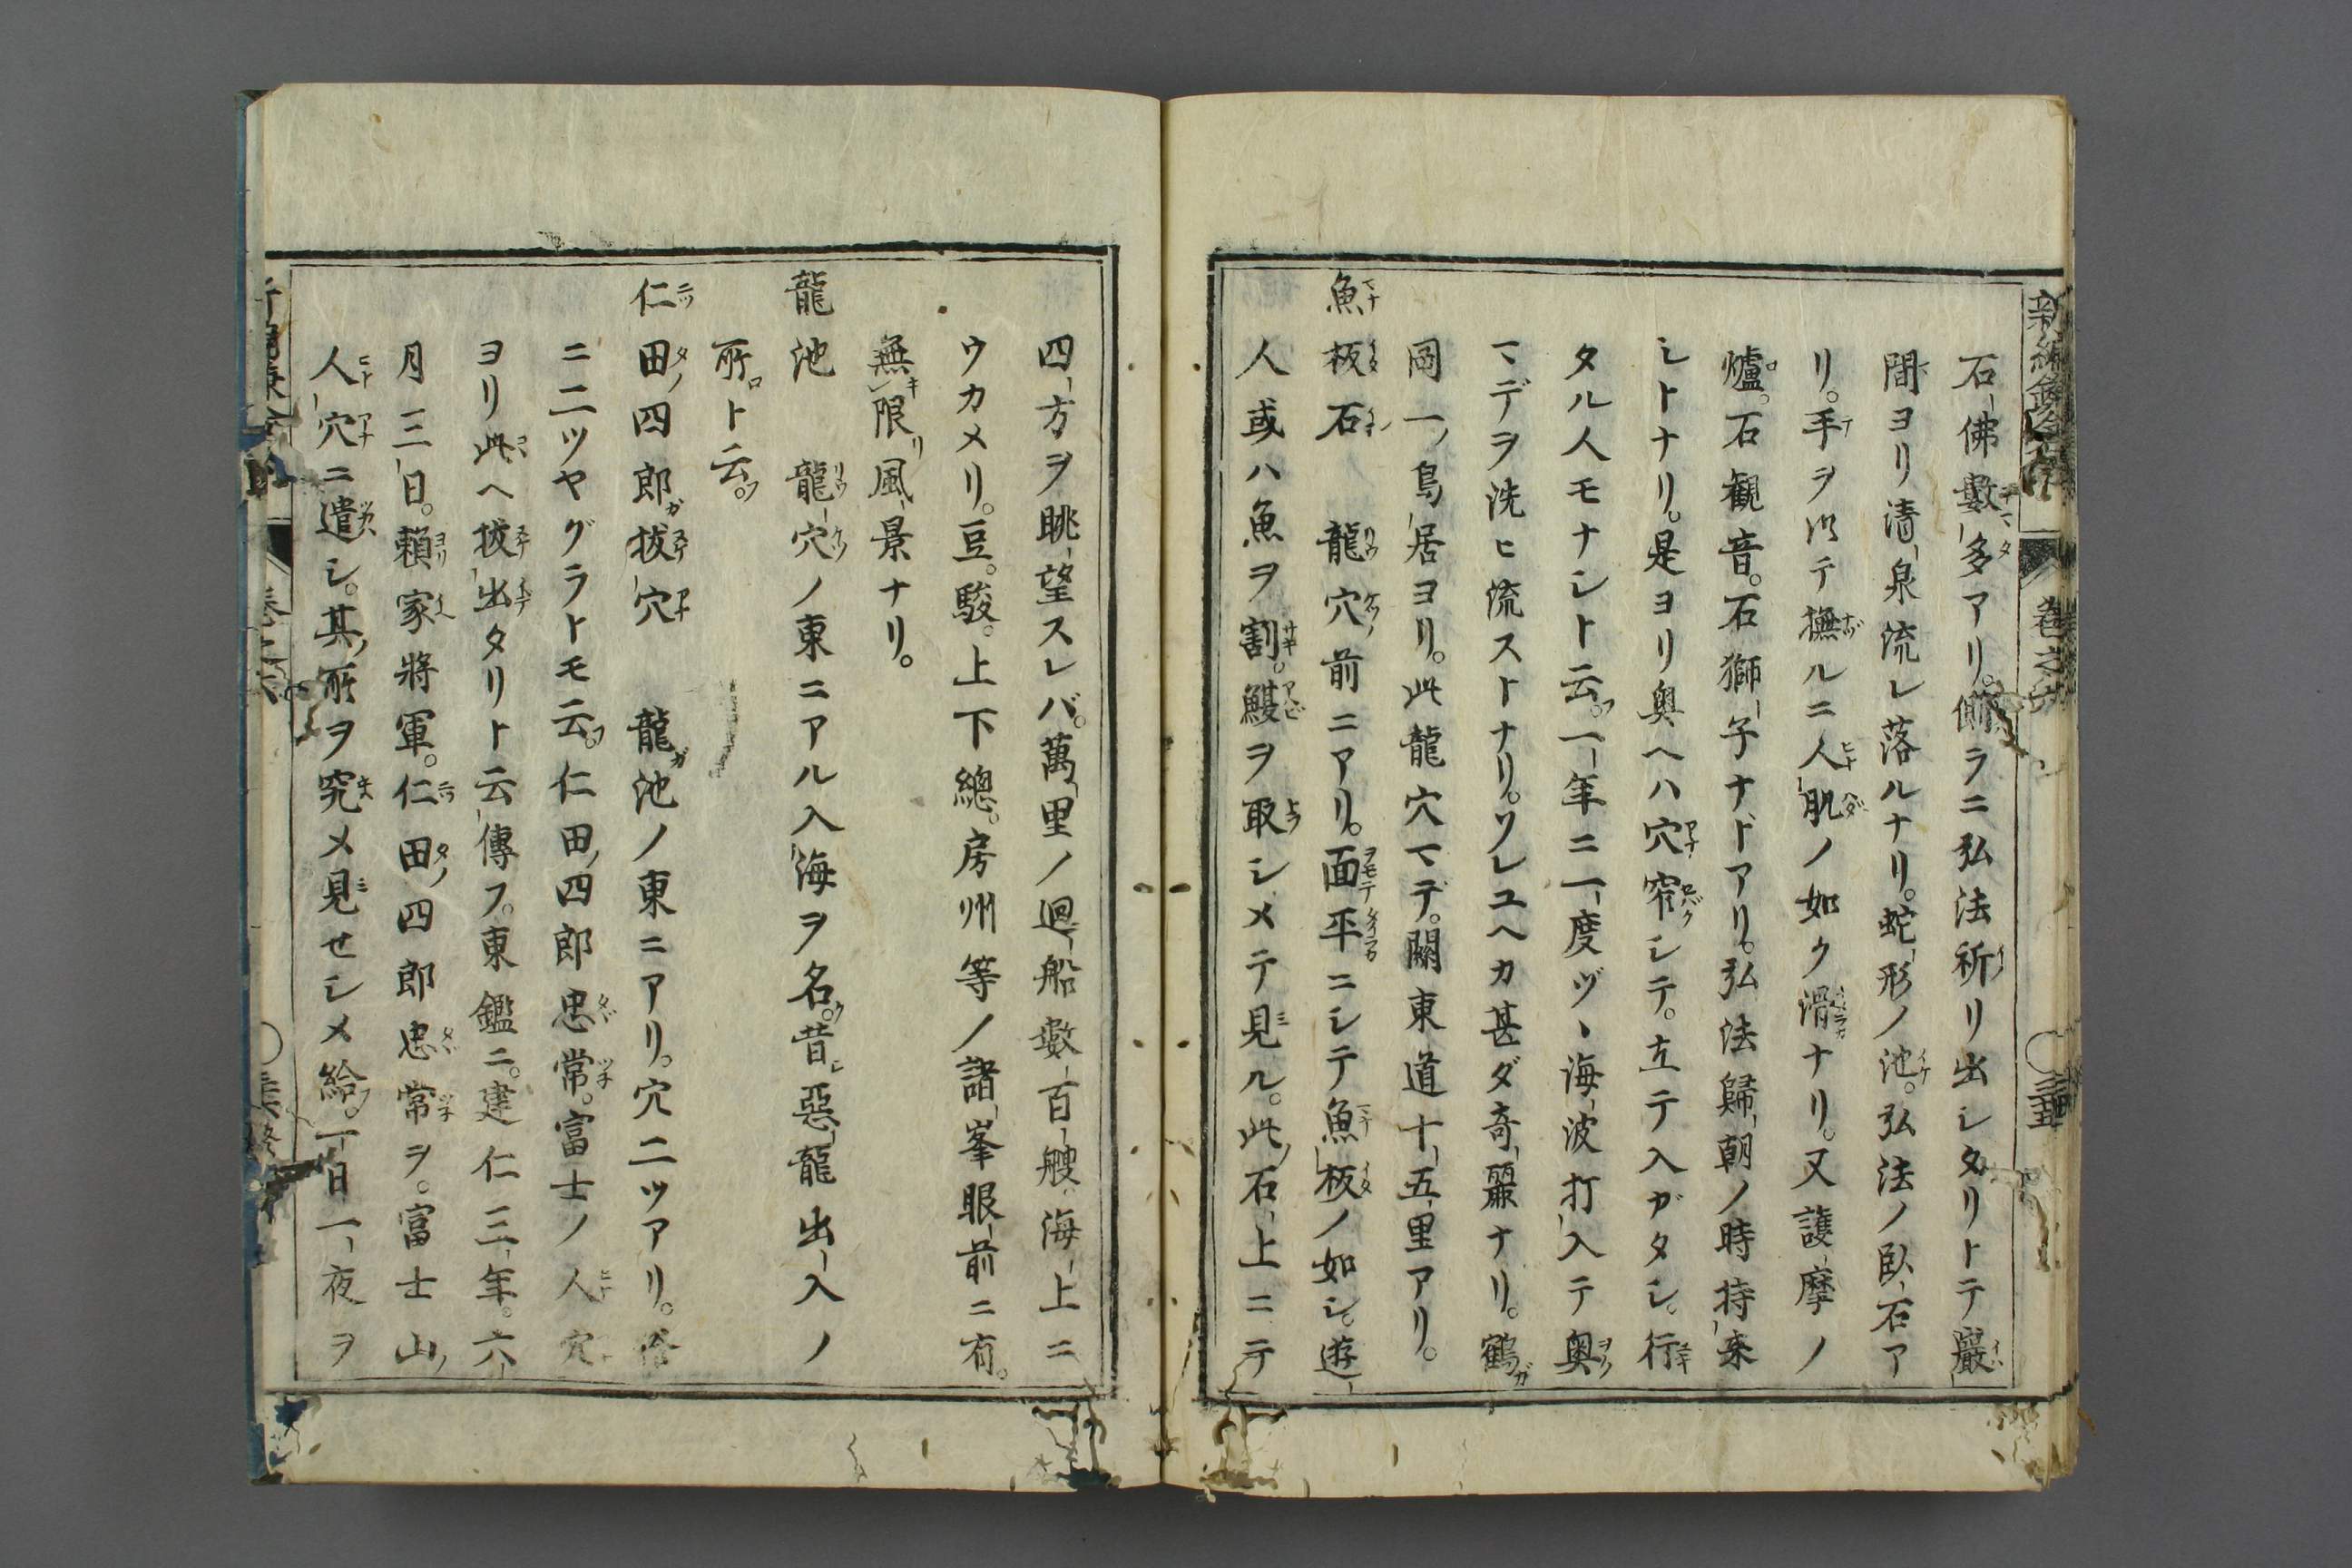 新編鎌倉志 卷之六 ○三十五
石佛數多アリ。側ラニ弘法祈リ出シタリトテ巖
間ヨリ清泉流レ落ルナリ。蛇形ノ池。弘法ノ臥石ア
リ。手ヲ以テ撫ルニ人肌ノ如ク滑ナリ。又護摩ノ
爐。石観音。石獅子ナドアリ。弘法歸朝ノ時持來
シトナリ。是ヨリ奥ヘハ穴窄シテ。立テ入ガタシ。行
タル人モナシト云。一年ニ一度ヅヽ海波打入テ奥
マデヲ洗ヒ流ストナリ。ソレユヘカ甚ダ奇麗ナリ。鶴
岡一鳥居ヨリ。此龍穴マデ。關東道十五里アリ。
魚板石 龍穴前ニアリ。面平ニシテ魚板ノ如シ。遊
人或ハ魚ヲ割。鰒ヲ取シメテ見ル。此石上ニテ
四方ヲ眺望スレバ。萬里ノ廻船數百艘海上ニ
ウカメリ。豆。駿。上下總。房州等ノ諸峯眼前ニ有。
無限風景ナリ。
龍池 龍穴ノ東ニアル入海ヲ名。昔惡龍出入ノ
所ト云。
仁田四郎拔穴 龍池ノ東ニアリ。穴二ツアリ。俗
ニ二ツヤグラトモ云。仁田四郎忠常。富士ノ人穴
ヨリ此ヘ拔出タリト云傳フ。東鑑ニ。建仁三年。六
月三日。頼家將軍。仁田四郎忠常ヲ。富士山
人穴ニ遣シ。其所ヲ究メ見セシメ給。一日一夜ヲ
卷之六